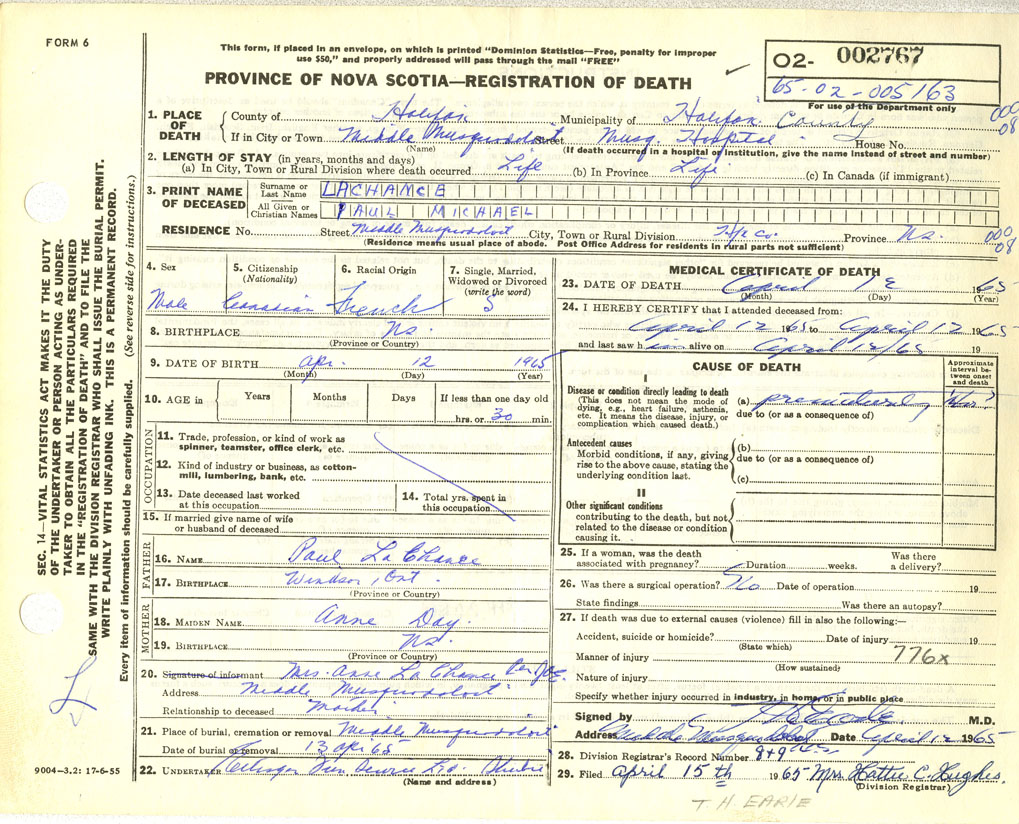 FORM 6
This form, if placed in an envelope, on which is printed "Dominion Statistics—Free, penalty for improper
use $50," and properly addressed will pass through the mail "FREE"
PROVINCE OF NOVA SCOTIA—REGISTRATION OF DEATH
02- 002767
65-02-005163
For use of the Department only
1. PLACE OF DEATH
County of Halifax Municipality of Halifax County 000 08
If in City or Town Middle Musquodoboit Street Musq. Hospital House No.
(Name) (If death occurred in a hospital or institution, give the name instead of street and number)
2. LENGTH OF STAY (in years, months and days)
(a) In City, Town or Rural Division where death occurred Life (b) In Province Life (c) In Canada (if immigrant)
3. PRINT NAME OF DECEASED
Surname or Last Name LACHANCE
All Given or Christian Names PAUL MICHAEL
RESIDENCE No. Street Middle Musquodoboit City, Town or Rural Division Hfx Co. Province Ns. 000 08
(Residence means usual place of abode. Post Office Address for residents in rural parts not sufficient)
4. Sex Male
5. Citizenship (Nationality) Canadian
6. Racial Origin French
7. Single, Married, Widowed or Divorced (write the word) S
8. BIRTHPLACE Ns.
(Province or Country)
9. DATE OF BIRTH Apr. 12 1965
(Month) (Day) (Year)
10. AGE in Years Months Days If less than one day old
hrs. or 30 min.
OCCUPATION
11. Trade, profession, or kind of work as
spinner, teamster, office clerk, etc.
12. Kind of industry or business, as cotton-
mill, lumbering, bank, etc.
13. Date deceased last worked
at this occupation
14. Total yrs. spent in
this occupation
15. If married give name of wife
or husband of deceased
FATHER
16. NAME Paul La Chance
17. BIRTHPLACE Windsor, Ont.
(Province or Country)
MOTHER
18. MAIDEN NAME Anne Day.
19. BIRTHPLACE Ns.
(Province or Country)
20. Signature of informant Mrs. Anne La Chance Per
Address Middle Musquodoboit
Relationship to deceased Mother
21. Place of burial, cremation or removal Middle Musquodoboit
Date of burial or removal 13 Apr 65
22. UNDERTAKER
(Name and address)
9004—3.2: 17-6-55
MEDICAL CERTIFICATE OF DEATH
23. DATE OF DEATH April 12 1965
(Month) (Day) (Year)
24. I HEREBY CERTIFY that I attended deceased from:
April 12 1965 to April 12 1965
and last saw him alive on April 12/65 19
CAUSE OF DEATH
Approximate interval between onset and death
I
Disease or condition directly leading to death
(This does not mean the mode of
dying, e.g., heart failure, asthenia,
etc. It means the disease, injury, or
complication which caused death.)
(a) prematurity
due to (or as a consequence of)
Antecedent causes
Morbid conditions, if any, giving
rise to the above cause, stating the
underlying condition last.
(b)
due to (or as a consequence of)
(c)
II
Other significant conditions
contributing to the death, but not
related to the disease or condition
causing it.
25. If a woman, was the death
associated with pregnancy? Duration weeks. Was there
a delivery?
26. Was there a surgical operation? No Date of operation 19
State findings Was there an autopsy?
27. If death was due to external causes (violence) fill in also the following:—
Accident, suicide or homicide? Date of injury 19
(State which)
Manner of injury 776x
(How sustained)
Nature of injury
Specify whether injury occurred in industry, in home, or in public place
Signed by M.D.
Address Middle Musquodoboit Date April 12 1965
28. Division Registrar's Record Number
29. Filed April 15th 1965 Mrs. Hattie C. Hughes.
(Division Registrar)
T. H. EARLE
SEC. 14—VITAL STATISTICS ACT MAKES IT THE DUTY
OF THE UNDERTAKER OR PERSON ACTING AS UNDER-
TAKER TO OBTAIN ALL THE PARTICULARS REQUIRED
IN THE "REGISTRATION OF DEATH" AND TO FILE THE
SAME WITH THE DIVISION REGISTRAR WHO SHALL ISSUE THE BURIAL PERMIT.
WRITE PLAINLY WITH UNFADING INK. THIS IS A PERMANENT RECORD.
Every item of information should be carefully supplied. (See reverse side for instructions.)